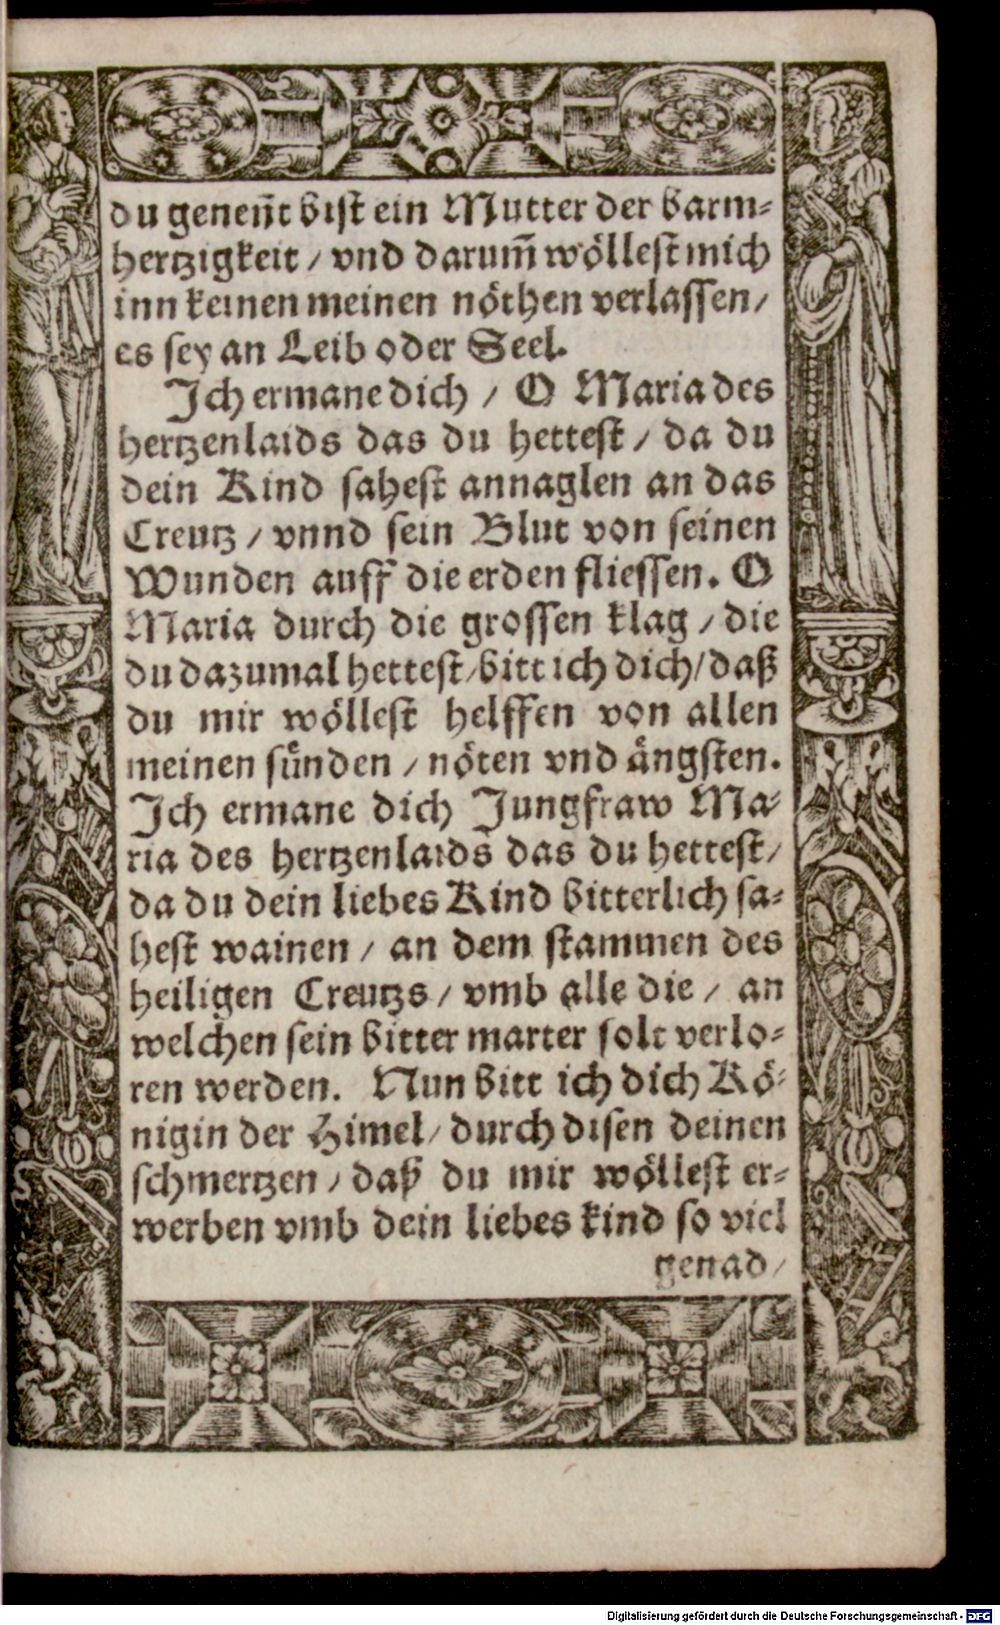 du geneñt bist ein Mutter der barm⸗
hertzigkeit / vnd darum̃ wöllest mich
inn keinen meinen nöthen verlassen /
es sey an Leib oder Seel.
Ich ermane dich / O Maria des
hertzenlaids das du hettest / da du
dein Kind sahest annaglen an das
Creutz / vnnd sein Blut von seinen
Wunden auff die erden fliessen. O
Maria durch die grossen klag / die
du dazumal hettest / bitt ich dich / daß
du mir wöllest helffen von allen
meinen sünden / nöten vnd ängsten.
Ich ermane dich Jungfraw Ma⸗
ria des hertzenlaids das du hettest /
da du dein liebes Kind bitterlich sa⸗
hest wainen / an dem stammen des
heiligen Creutzs / vmb alle die / an
welchen sein bitter marter solt verlo⸗
ren werden. Nun bitt ich dich Kö⸗
nigin der Himel / durch disen deinen
schmertzen / daß du mir wöllest er⸗
werben vmb dein liebes kind so viel
genad /
Digitalisierung gefördert durch die Deutsche Forschungsgemeinschaft - DFG